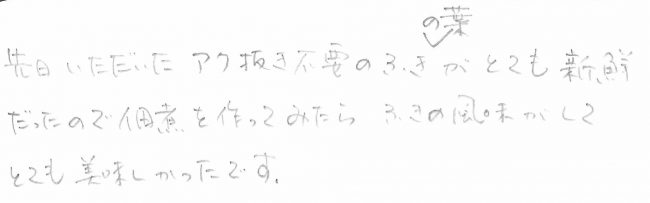 の葉
先日いただいたアク抜き不要のふきがとても新鮮
だったので佃煮を作ってみたら ふきの風味がして
とても美味しかったです。